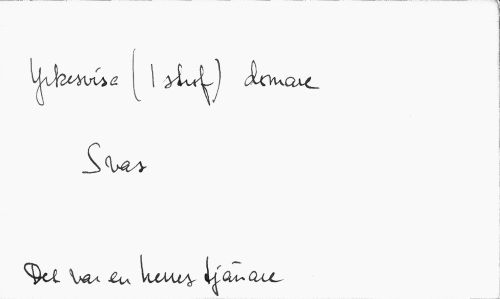 Yrkesvisa (1 strof) domare
Svar
Det var en herres tjänare